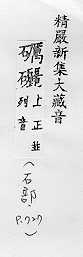 精嚴新集大藏音
上正並
列音
(石部. P.727)